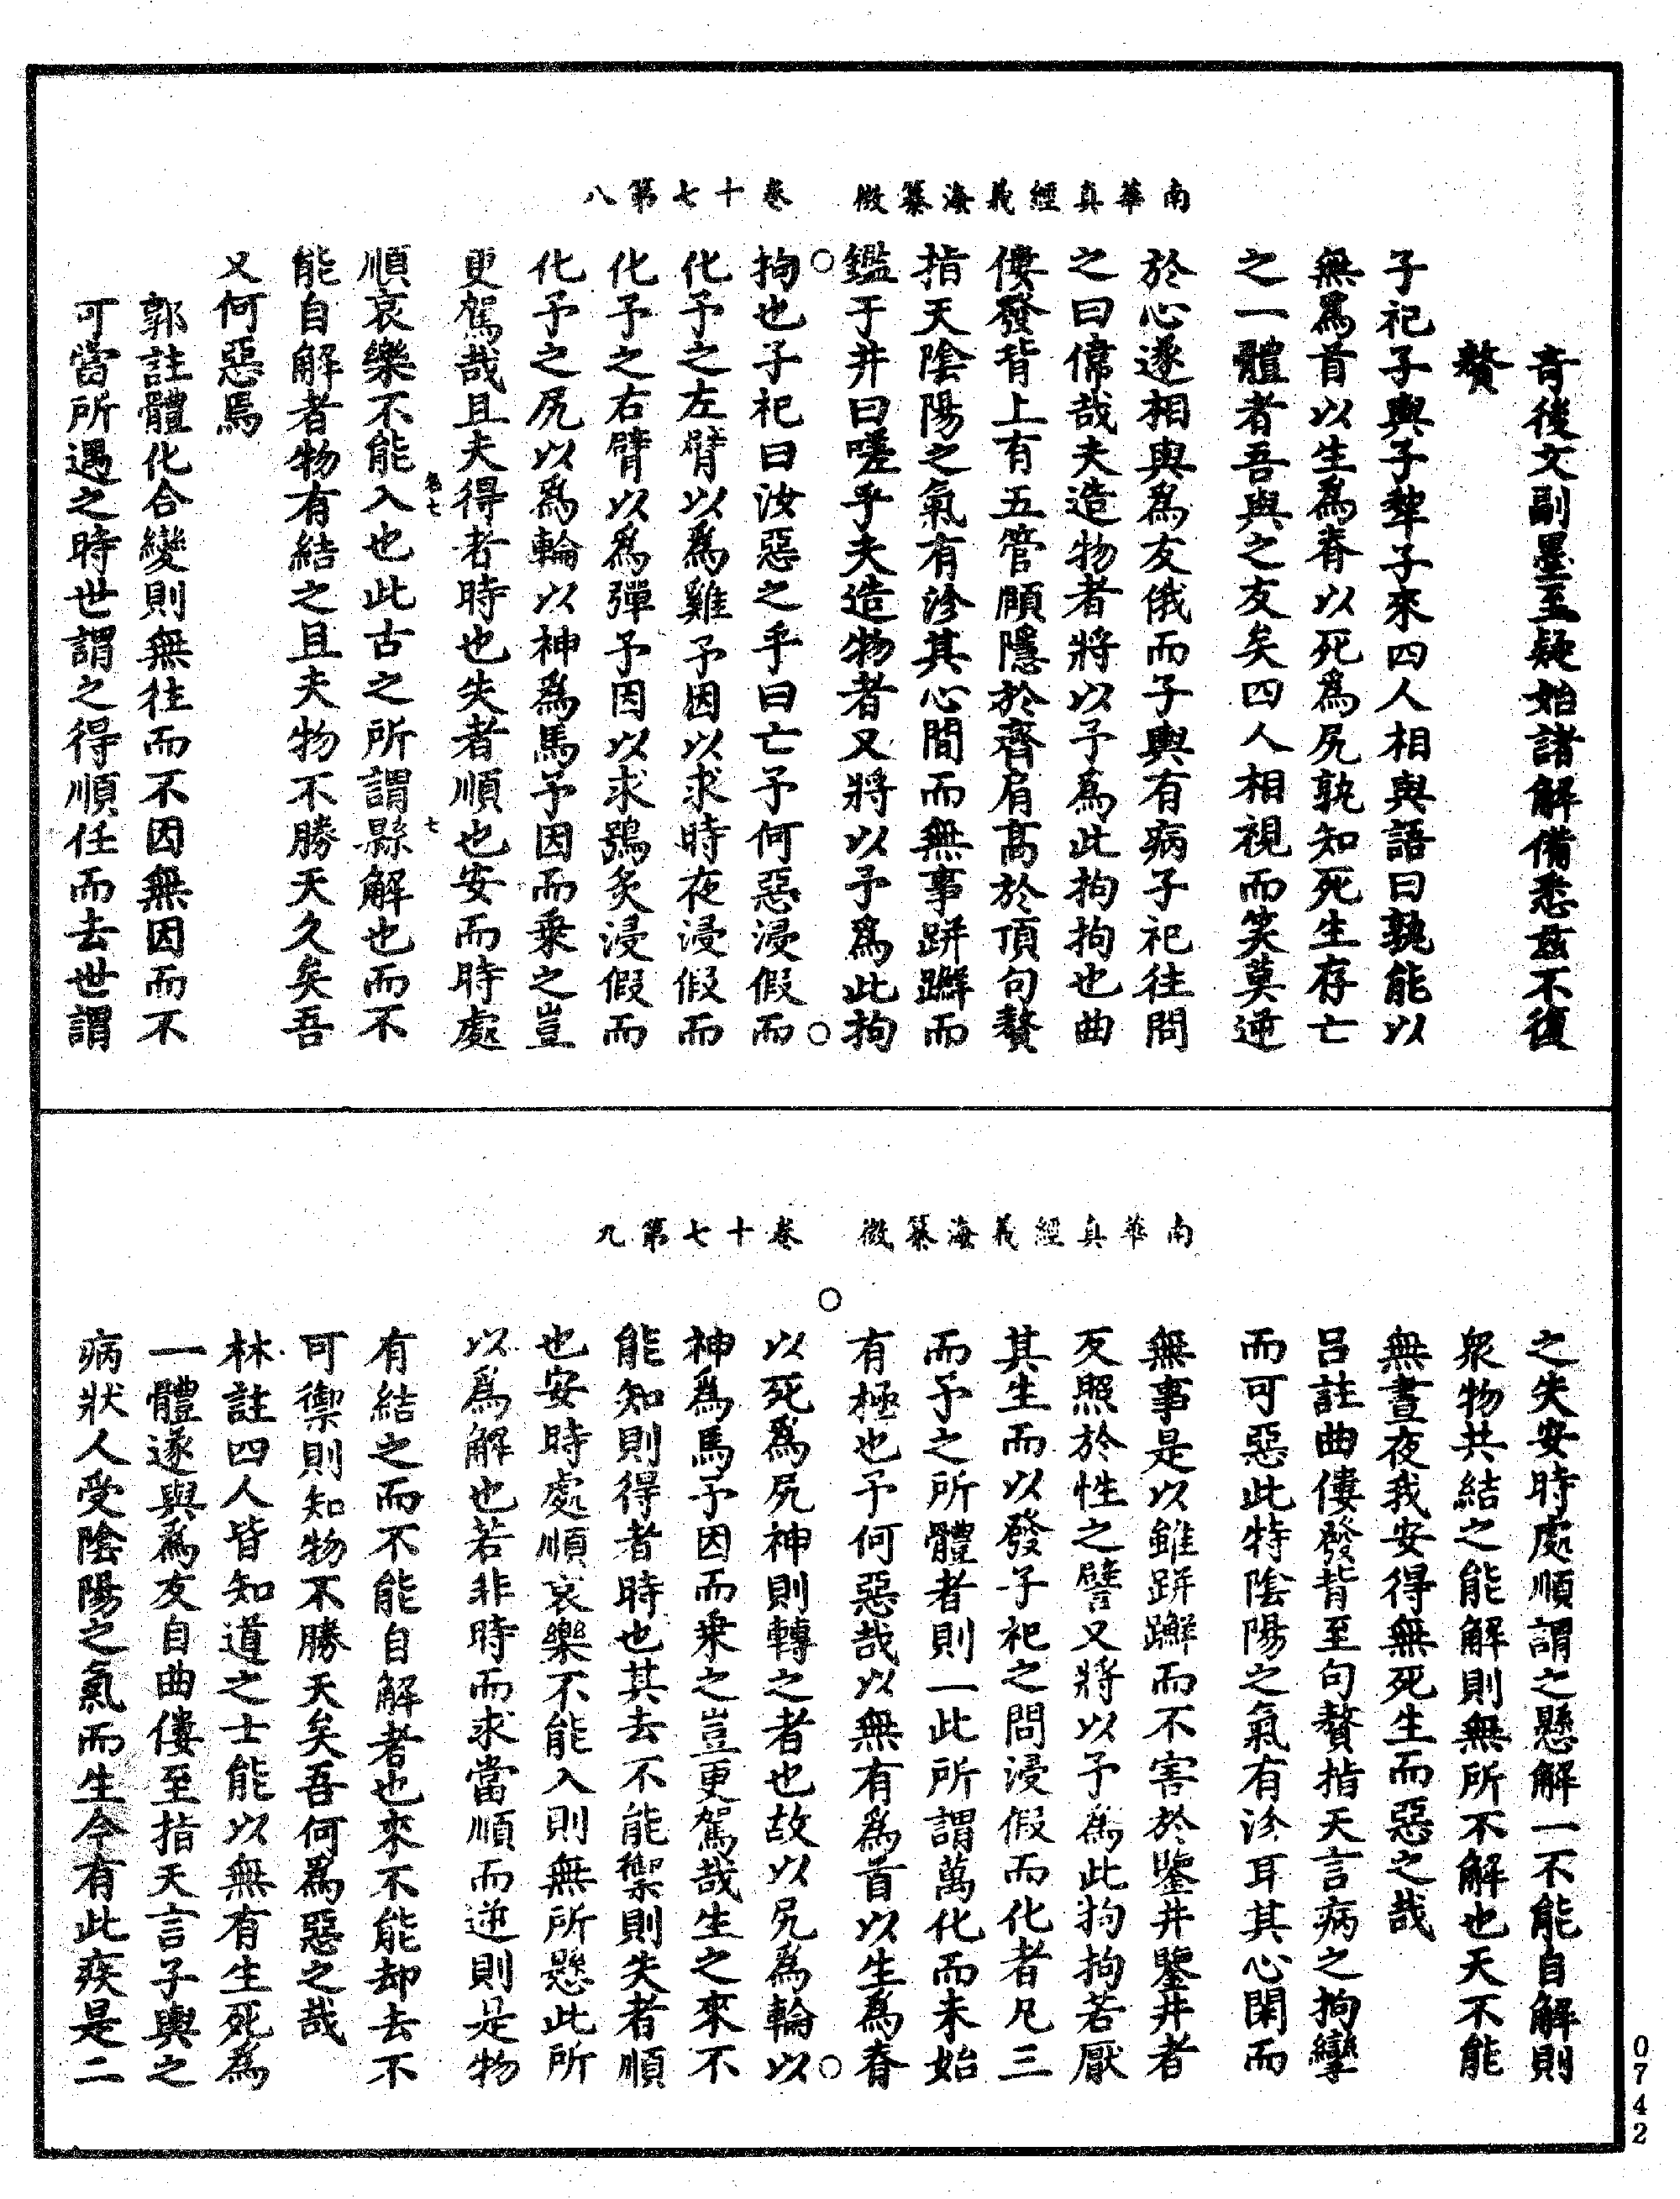 南華真經義海纂微　卷十七第八
音後文副墨至疑始諸解備悉茲不復
贅
子祀子輿子犂子來四人相與語曰孰能以
無爲首以生爲脊以死爲尻孰知死生存亡
之一體者吾與之友矣四人相視而笑莫逆
於心遂相與爲友俄而子輿有病子祀往問
之曰偉哉夫造物者將以予爲此拘拘也曲
僂發背上有五管頤隱於齊肩高於頂句贅
指天陰陽之氣有沴其心間而無事跰𨇤而
鑑于井曰嗟乎夫造物者又將以予爲此拘
拘也子祀曰汝惡之乎曰亡予何惡浸假而
化予之左臂以爲雞予因以求時夜浸假而
化予之右臂以爲彈予因以求鴞炙浸假而
化予之尻以爲輪以神爲馬予因而乗之豈
更駕哉且夫得者時也失者順也安而時處
卷七　七
順哀樂不能入也此古之所謂縣解也而不
能自解者物有結之且夫物不勝天久矣吾
又何惡焉
郭註體化合變則無往而不因無因而不
可當所遇之時世謂之得順任而去世謂
南華真經義海纂微　卷十七第九
之失安時處順謂之懸解一不能自解則
衆物共結之能解則無所不解也天不能
無晝夜我安得無死生而惡之哉
呂註曲僂發背至句贅指天言病之拘攣
而可惡此特陰陽之氣有沴耳其心閑而
無事是以雖跰𨇤而不害於鑒井鑒井者
反照於性之譬又將以予爲此拘拘若厭
其生而以發子祀之問浸假而化者凡三
而予之所體者則一此所謂萬化而未始
有極也予何惡哉以無有爲首以生爲脊
以死爲尻神則轉之者也故以尻爲輪以
神爲馬予因而乗之豈更駕哉生之來不
能知則得者時也其去不能禦則失者順
也安時處順哀樂不能入則無所懸此所
以爲解也若非時而求當順而逆則是物
有結之而不能自解者也來不能却去不
可禦則知物不勝天矣吾何爲惡之哉
林註四人皆知道之士能以無有生死爲
一體遂與爲友自曲僂至指天言子輿之
病狀人受陰陽之氣而生今有此疾是二
0742